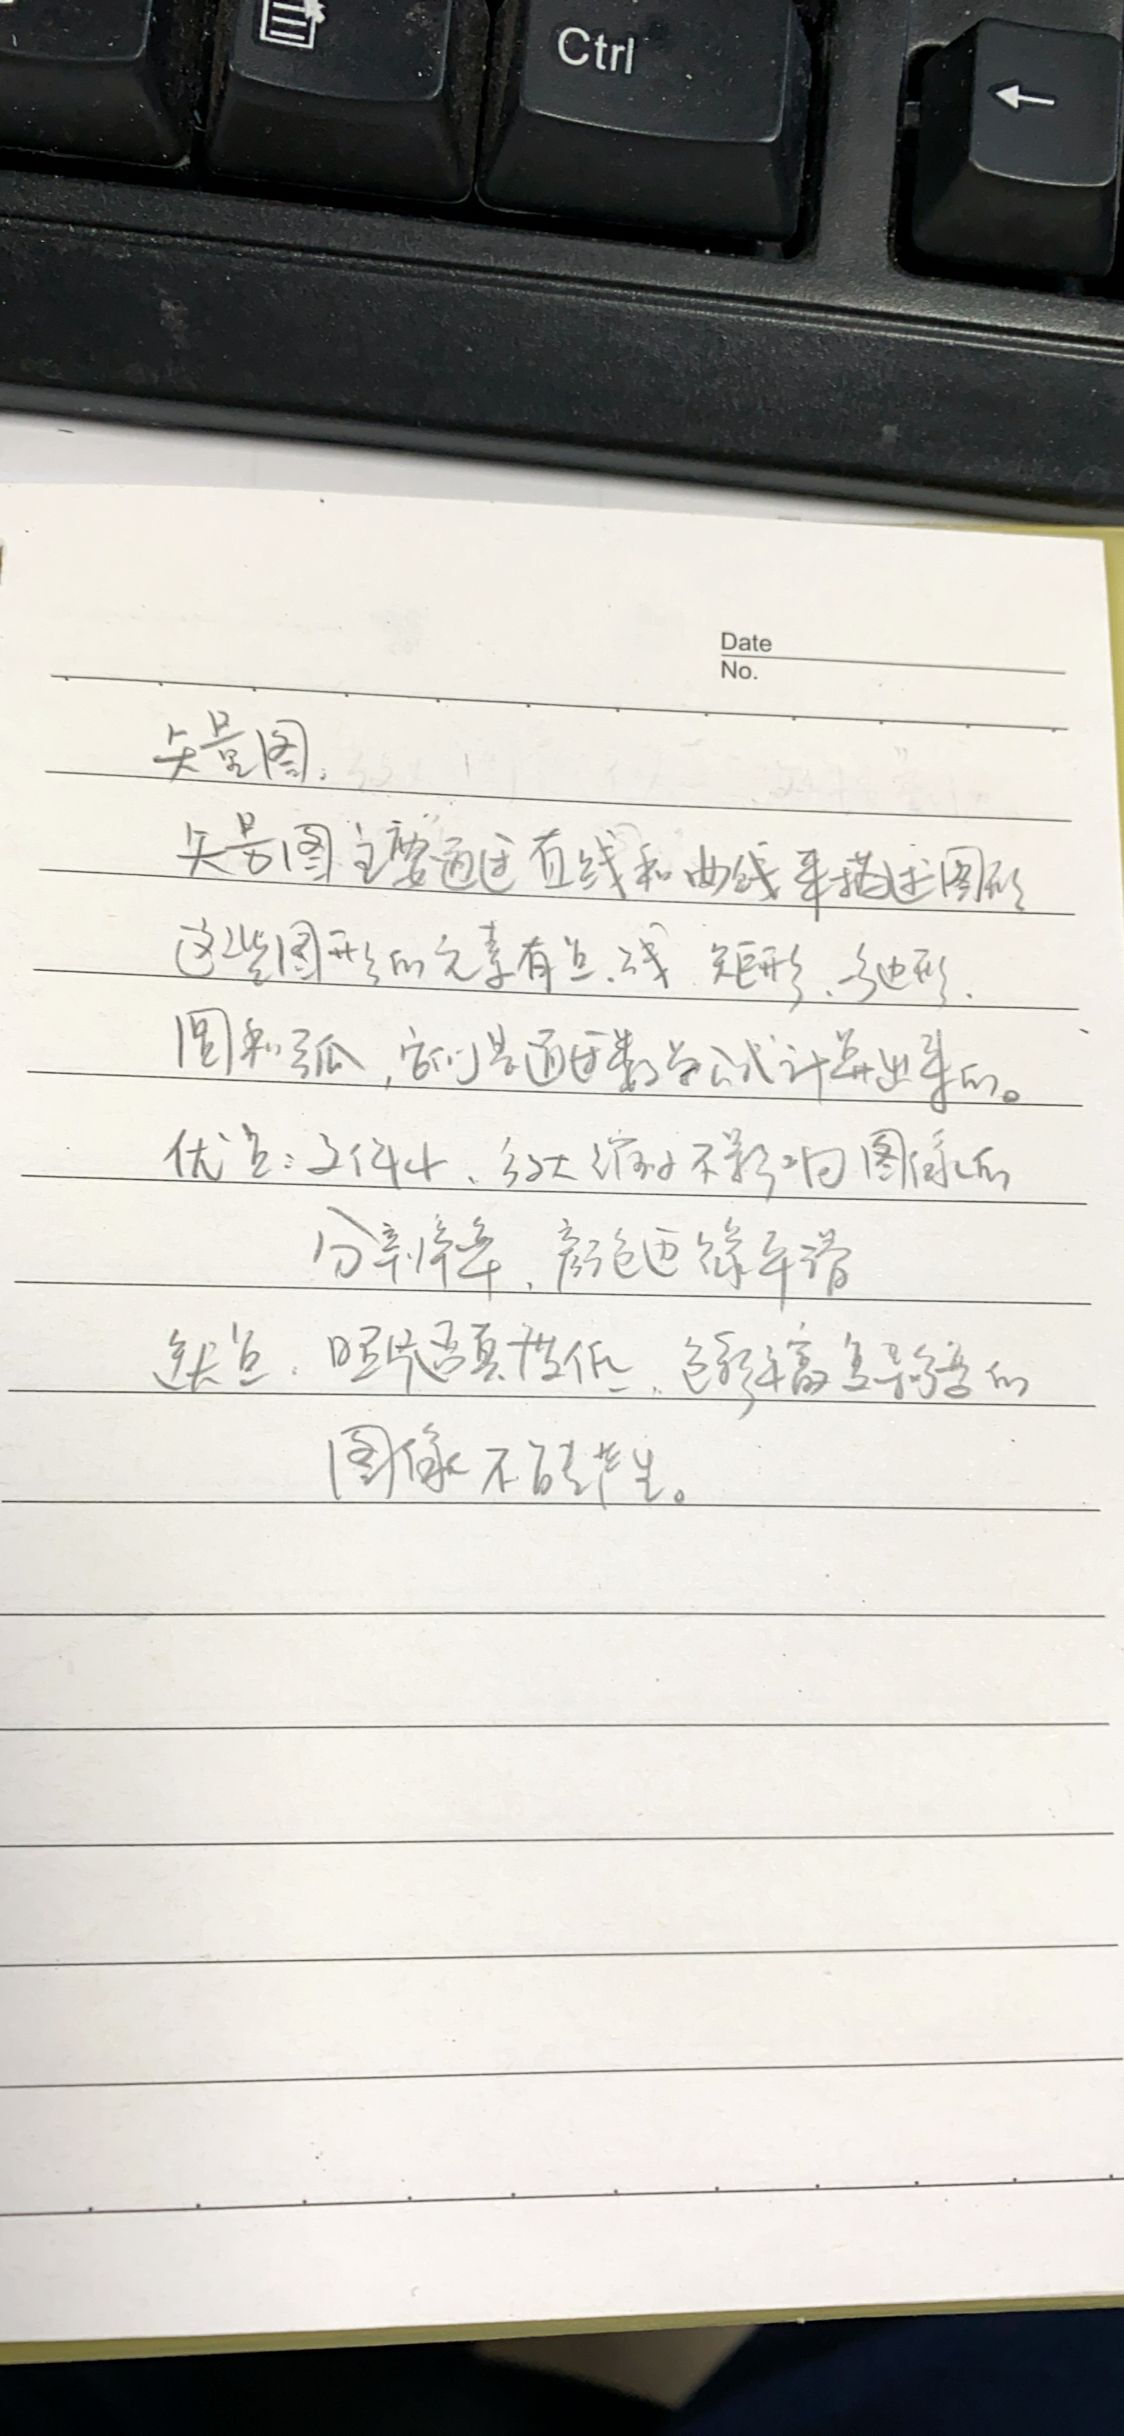 Ctrl
Date
No.
矢量图:
矢量图主要通过直线和曲线来描述图形
这些图形的元素有点、线、矩形、多边形、
圆和弧,它们是通过数学公式计算出来的。
优点:文件小、放大缩小不影响图像的
分辨率、颜色边缘平滑
缺点:照片逼真性低、色彩丰富复杂的
图像不能产生。